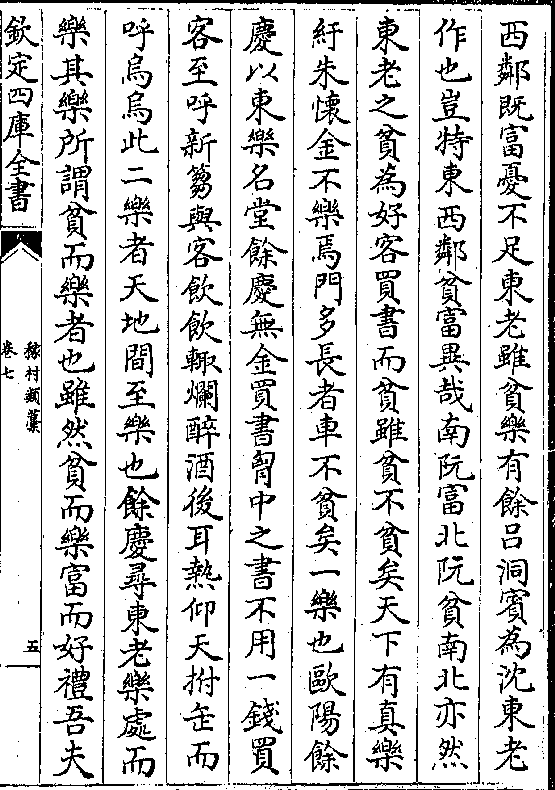 西鄰既富憂不足東老雖貧樂有餘呂洞賓為沈東老
作也豈特東西鄰貧富異哉南阮富北阮貧南北亦然
東老之貧為好客買書而貧雖貧不貧矣天下有真樂
紆朱懷金不樂焉門多長者車不貧矣一樂也歐陽餘
慶以東樂名堂餘慶無金買書胷中之書不用一錢買
客至呼新篘與客飲飲輙爛醉酒後耳熱仰天拊缶而
呼烏烏此二樂者天地間至樂也餘慶尋東老樂處而
樂其樂所謂貧而樂者也雖然貧而樂富而好禮吾夫
欽定四庫全書
稼村類藁
卷七
五